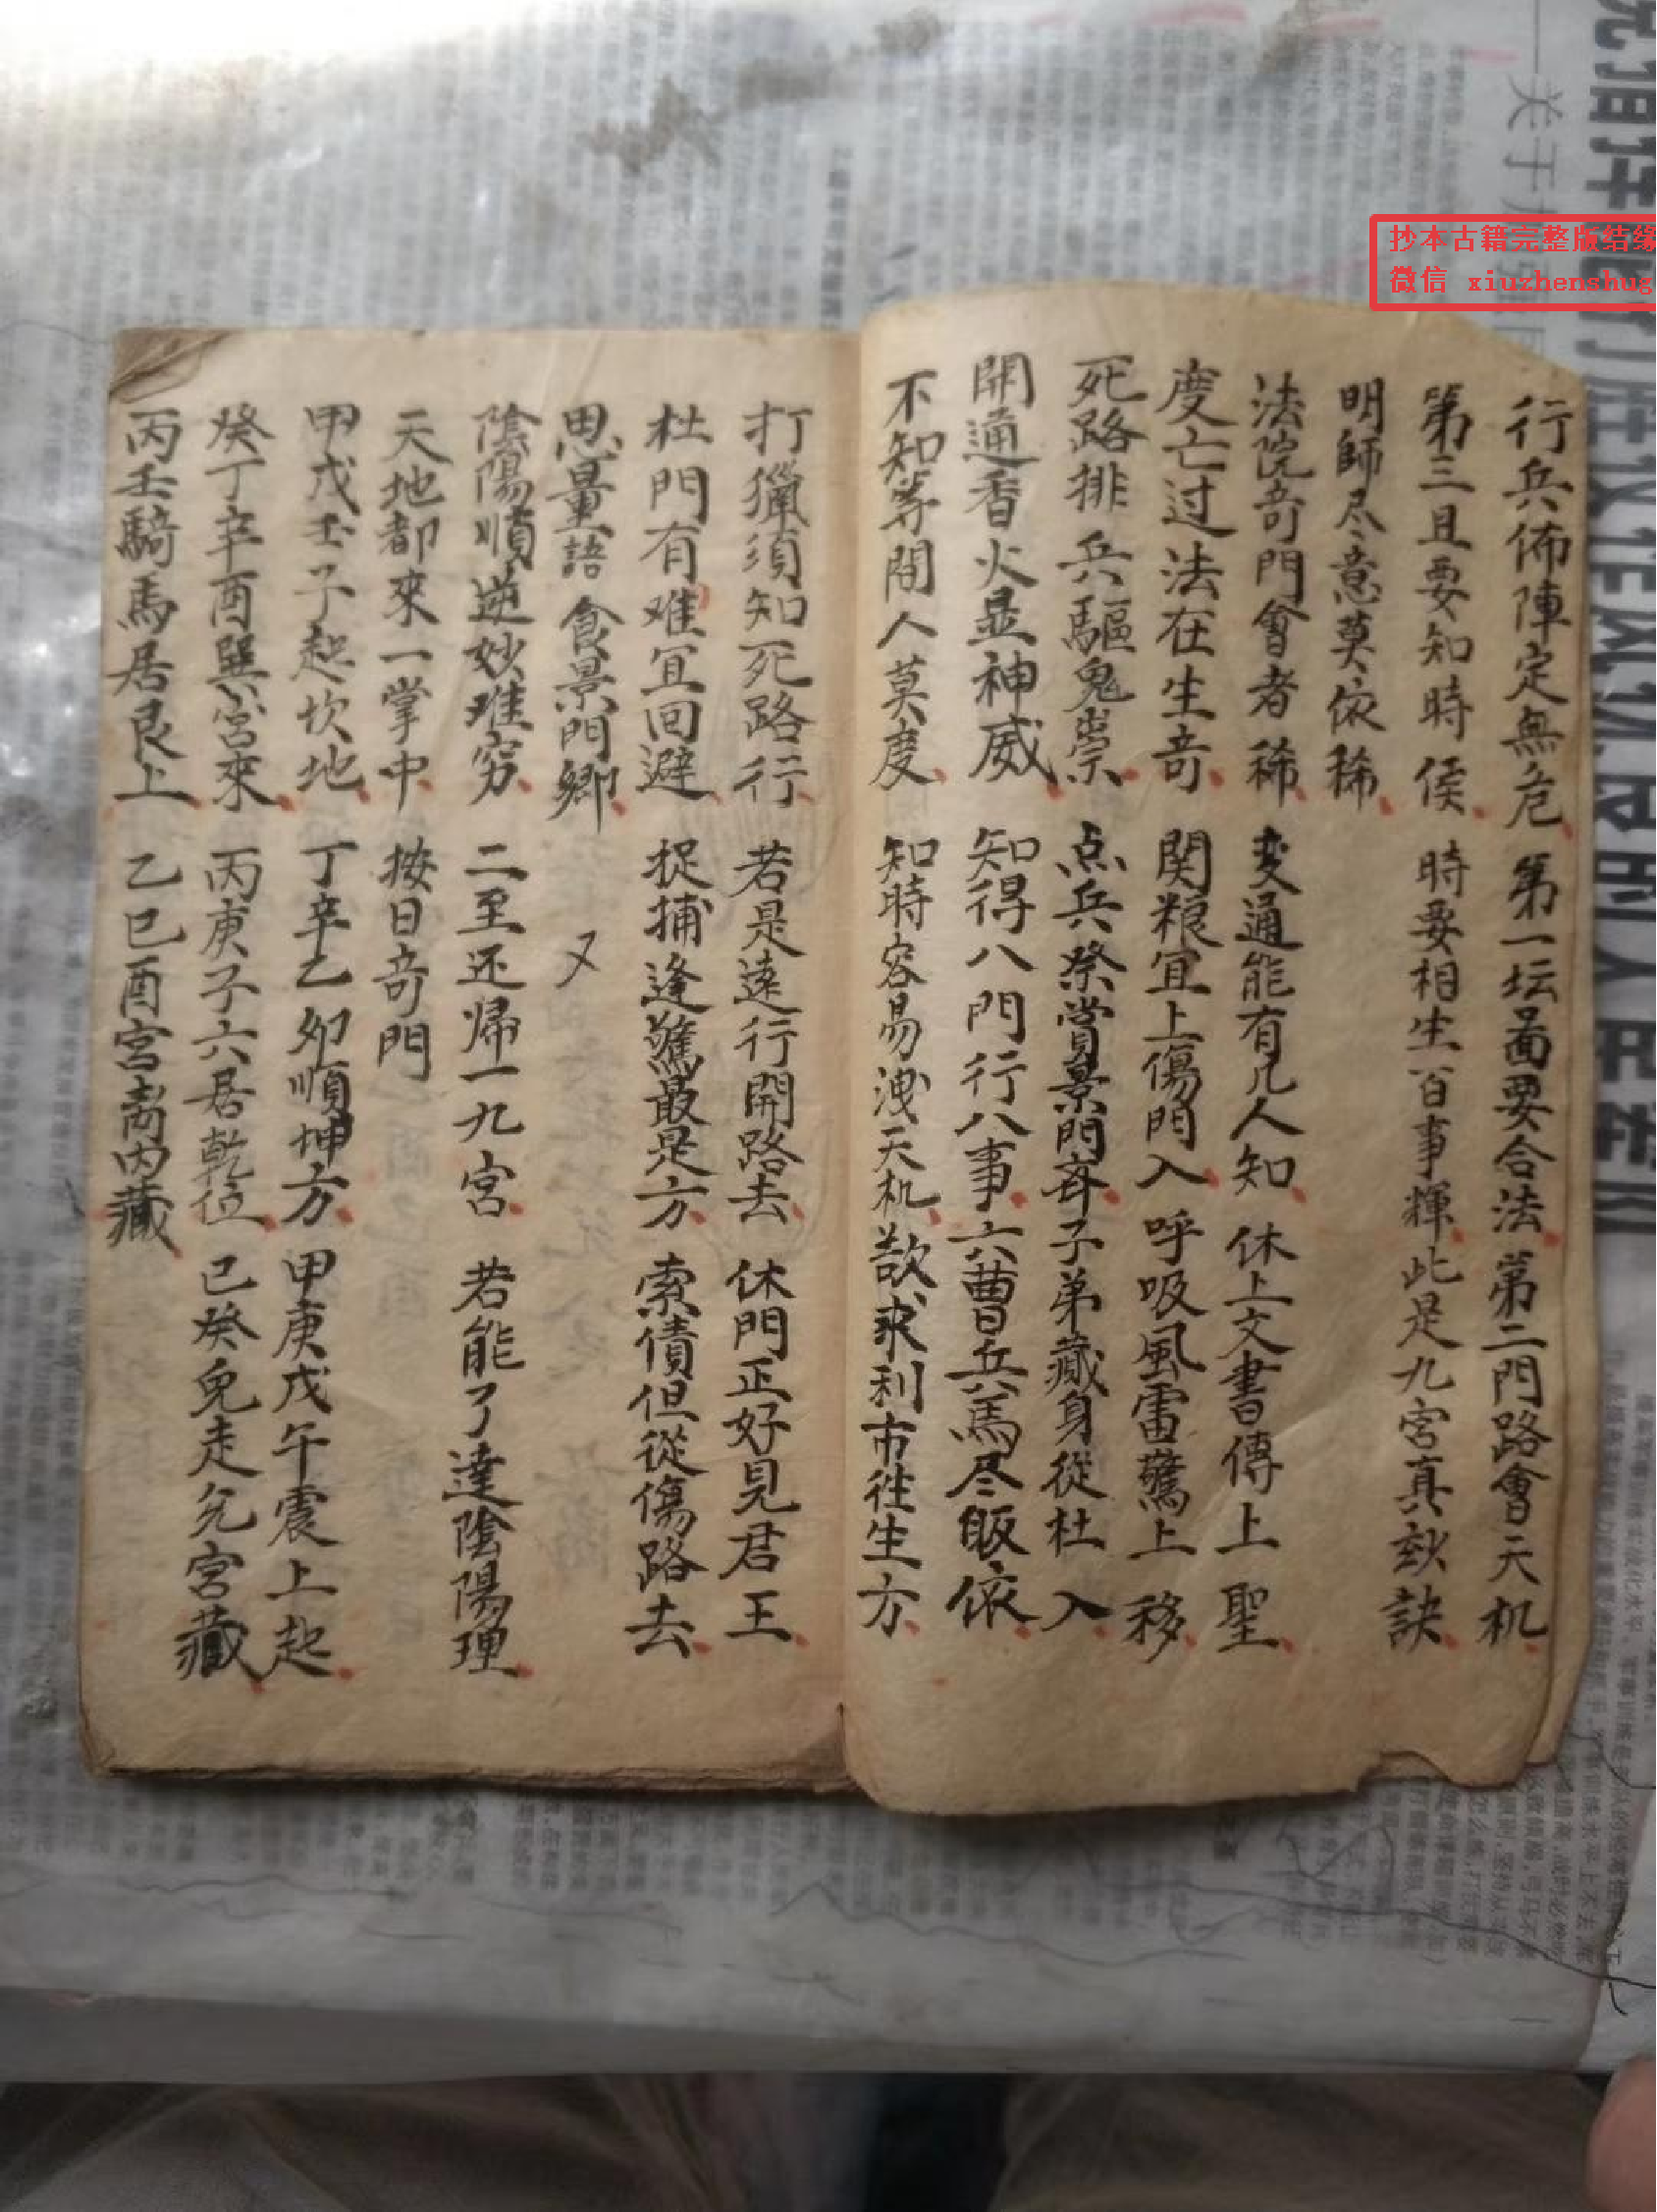 抄本古籍完整版结缘
微信 xiuzhenshug
行兵佈陣定無危 第一坛啚要合法 第二門路會天机
第三且要知時侯 時要相生百事輝 此是九宮真訣
明師尽意莫依稀
法院奇門會者稀 変通能有几人知 休上文書傳上聖
度亡过法在生奇 関粮宜上傷門入 呼吸風雷驚上移
死路排兵驅鬼祟 点兵祭賞景門斉 子弟藏身從杜入
開通香火显神威 知得八門行八事 六曹兵馬尽皈依
不知等間人莫度 知時容易洩天机 欲求利市往生方
打獵須知死路行 若是遠行開路去 休門正好見君王
杜門有难宜回避 捉捕逢驚最是方 索債但從傷路去
思量語食景門鄉 又
陰陽順逆妙难穷 二至还歸一九宮 若能了達陰陽理
天地都來一掌中 按日奇門
甲戊壬子起坎地 丁辛乙夘順坤方 甲庚戊午震上起
癸丁辛酉巽宮來 丙庚子六居乾位 己癸兔走兑宮藏
丙壬騎馬居艮上 乙巳酉宮离内藏